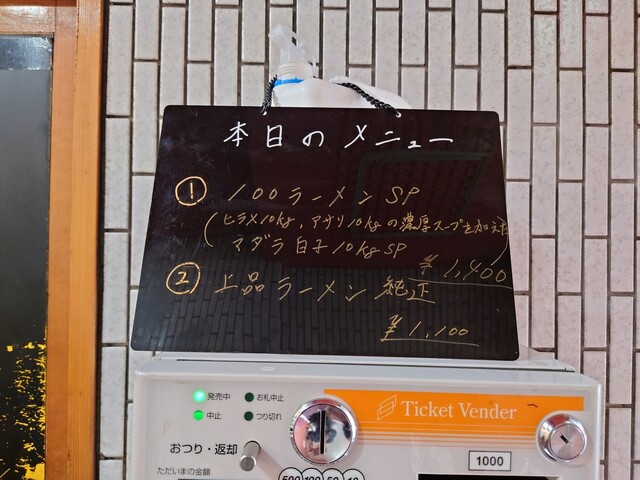 本日のメニュー
① 100ラーメンSP
(ヒラメ10kg、アサリ10kgの濃厚スープを加え)
マダラ白子10kgSP
¥1,400
② 上品ラーメン 純正
¥1,100
発売中 お札中止
中止 つり切れ
Ticket Vender
おつり・返却
1000
ただいまの金額
500 100 50 10